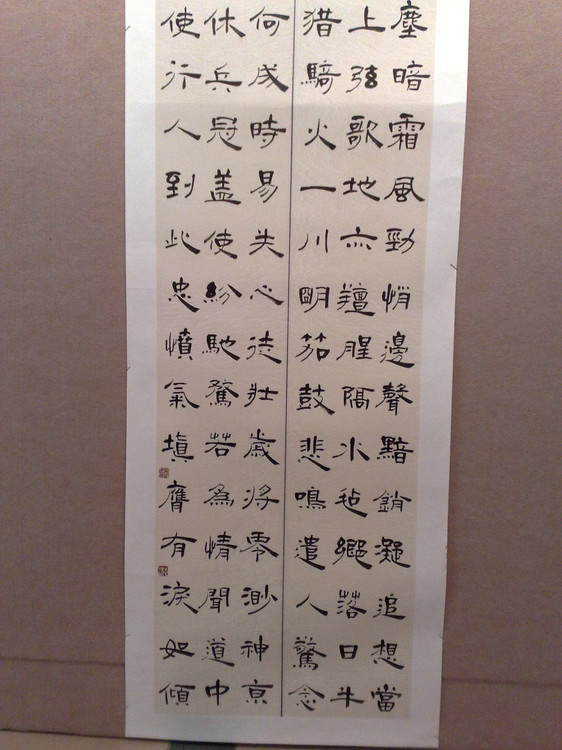 塵暗霜風勁悄邊聲黯銷凝追想當
上弦歌地亦羶腥隔水氈鄉落日牛
猎騎火一川明笳鼓悲鳴遣人驚念
何成時易失心徒壯歲將零渺神亰
休兵冠盖使紛馳騖若為情聞道中
使行人到此忠憤氣填膺有淚如傾